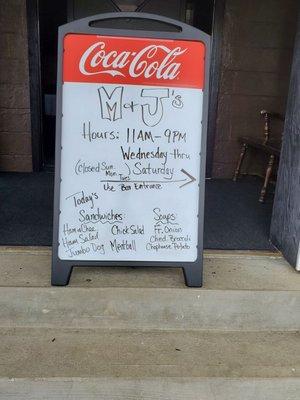 Coca-Cola
M & J's
Hours: 11AM - 9PM
Wednesday - thru
(Closed Sun. Mon. Tues Saturday
Use Bar Entrance
Today's
Sandwiches: Soups:
Ham n Chee Chick Salad Fr. Onion
Ham Salad Ched. Broccoli
Jumbo Dog Meatball Chophouse Potato